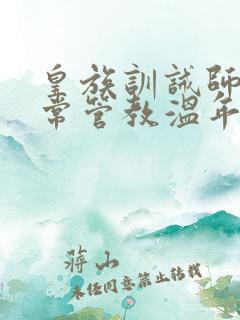 皇族訓誡師
常管教溫年
蔣山
未經同意禁止轉載